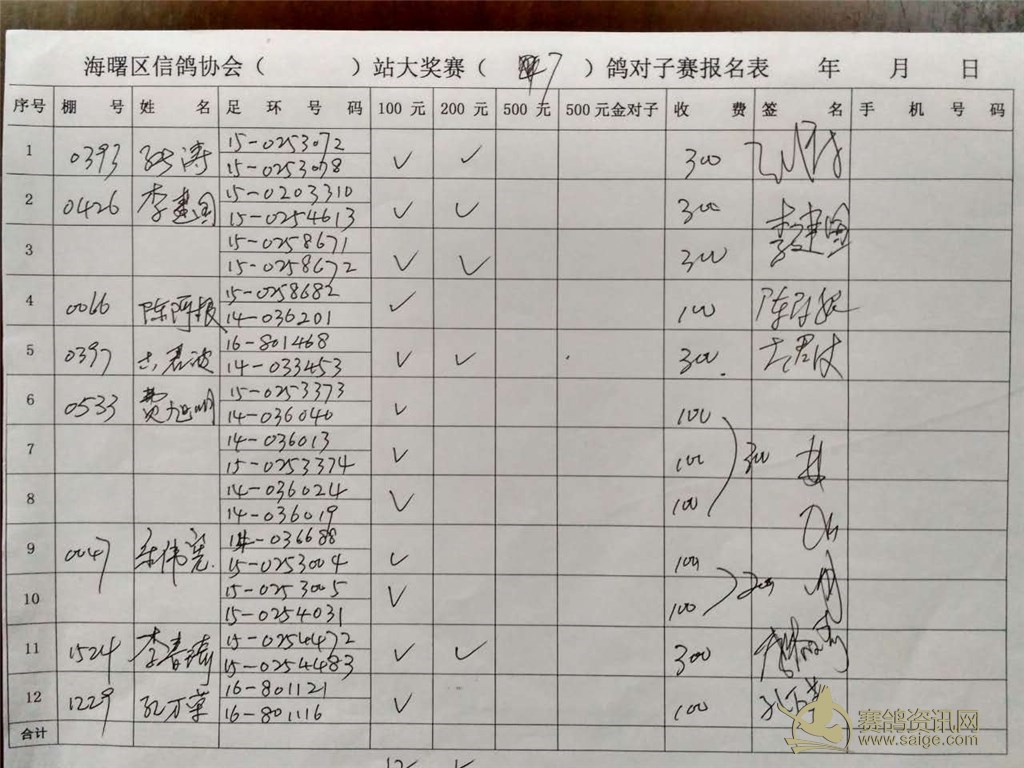 海曙区信鸽协会（ ）站大奖赛（ 7 ）鸽对子赛报名表 年 月 日
序号 棚号 姓名 足环号码 100元 200元 500元 500元金对子 收费 签名 手机号码
1 0393 孙涛 15-0253072 ✓ ✓ 300
15-0253078
2 0426 李建国 15-0203310 ✓ ✓ 300 李建国
15-0254613
3 15-0258671 ✓ ✓ 300
15-0258672
4 0066 陈阿根 15-0258682 ✓ 100 陈阿根
14-036201
5 0397 君波 16-801468 ✓ ✓ 300 君波
14-033453
6 0533 费旭明 15-0253373 ✓ 100
14-036040
7 14-036013 ✓ 100 300
15-0253374
8 14-036024 ✓ 100
14-036019
9 0047 伟 14-036688 ✓ 100
15-0253004
10 15-0253005 ✓ 100 200
15-0254031
11 1524 李春 15-0254472 ✓ ✓ 300
15-0254483
12 1229 孔万 16-801121 ✓ 100 孔万
16-801116
合计
赛鸽资讯网
www.saige.com